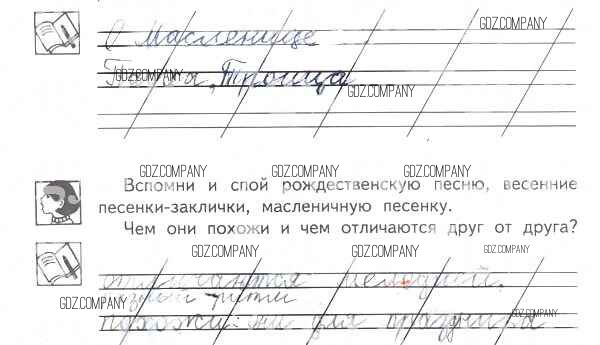 GDZ.COMPANY
О Масленице
GDZ.COMPANY
, Троица
GDZ.COMPANY
GDZ.COMPANY GDZ.COMPANY GDZ.COMPANY
Вспомни и спой рождественскую песню, весенние
песенки-заклички, масленичную песенку.
Чем они похожи и чем отличаются друг от друга?
GDZ.COMPANY GDZ.COMPANY GDZ.COMPANY
отличаются мелодией,
ритм
GDZ.COMPANY
похожи: для праздника
GDZ.COMPANY